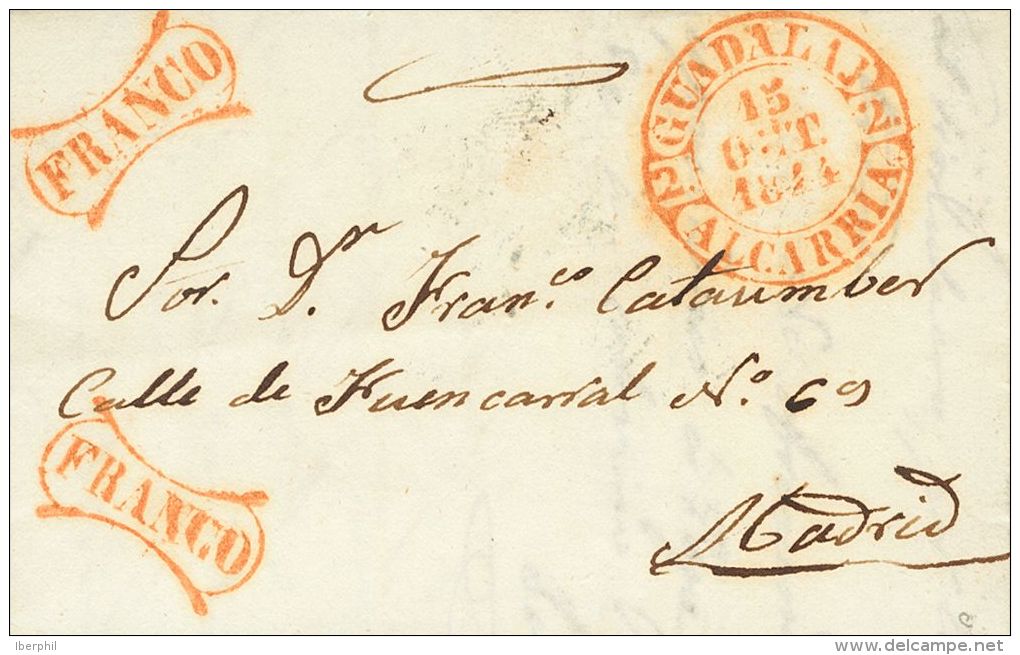 FRANCO
GUADALAJ.
15
OCT.
1844
ALCARRIA
Sor. Dn. Franco. Cataumber
Calle de Fuencarral No. 69
FRANCO
Madrid
Iberphil
www.delcampe.net